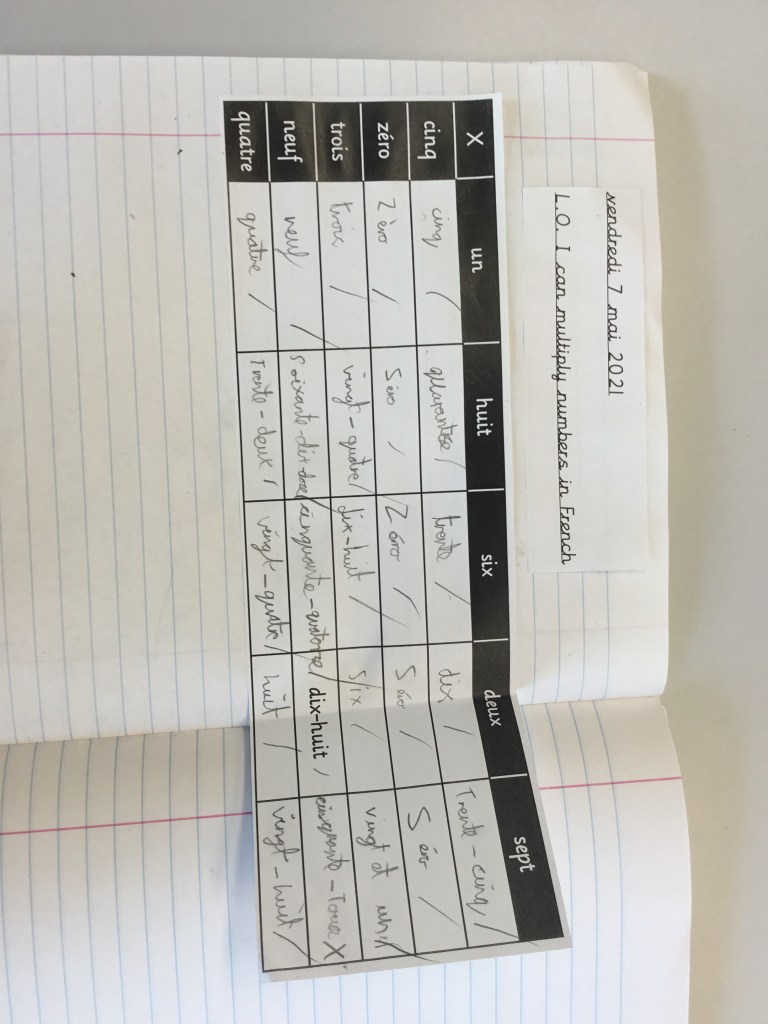 vendredi 7 mai 2021
L.O. I can multiply numbers in French
X un huit six deux sept
cinq cinq / quarante / trente / dix / Trente-cinq /
zéro Zéro / Séro / Zéro / Séro / Séro /
trois trois / vingt-quatre / dix-huit / six / vingt et un /
neuf neuf / Soixante-dix-douze / cinquante-quatorze / dix-huit / X
quatre quatre / Trente-deux / vingt-quatre / huit / vingt-huit /